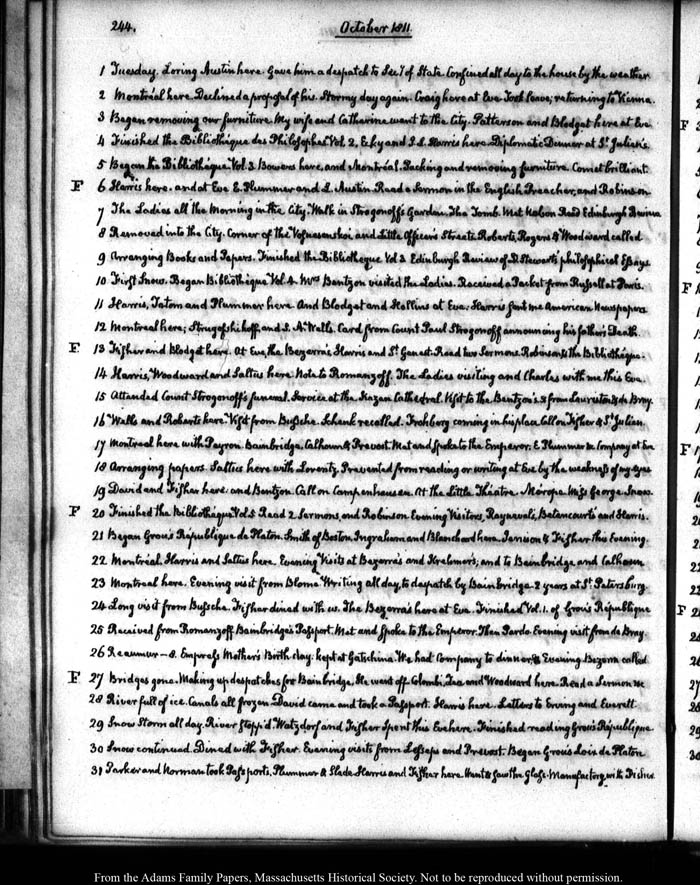 244. October 1811.
1 Tuesday. Loring Austin here. Gave him a despatch to Secy of State. Confined all day to the house by the weather.
2 Montréal here. Declined a proposal of his. Stormy day again. Craig here at Eve. Took leave, returning to Vienna.
3 Began removing our furniture. My wife and Catherine went to the City. Patterson and Blodget here at Eve.
4 Finished the Bibliothèque des Philosophes Vol. 2. and Harris here. Diplomatic Dinner at St. Julien's.
5 Began the Bibliothèque Vol. 3. Bowers here, and Montréal. Packing and removing furniture. Comet brilliant.
F 6 Harris here. and at Eve E. Plummer and L. Austin. Read a Sermon in the English Preacher, and Robinson
7 The Ladies all the Morning in the City. Walk in Strogonoff's Garden. The Tomb. Met Read Edinburgh Review
8 Removed into the City. Corner of the Vosnesenskoi, and Little Officer's Streets. Roberts, Rogers & Woodward called
9 Arranging Books and Papers. Finished the Bibliotheque Vol 3. Edinburgh Review of D. Stewart's philosophical Essays.
10 First Snow. Began Bibliothèque Vol. 4. Mrs Bentzon visited the Ladies. Received a Packet from Russell at Paris.
11 Harris, Tatom and Plummer here. And Blodget and Hollins at Eve. Harris sent me American Newspapers
12 Montreal here; and Walls. Card from Count Paul Strogonoff announcing his father's Death.
F. 13 Fisher and Blodget here. At Eve, the Bezerra's Harris and St. Genest. Read two Sermons. Robinson & the Bibliothèque.
14 Harris, Woodward and Saltus here. Note to Romanzoff. The Ladies visiting and Charles with me this Eve.
15 Attended Count Strogonoff's funeral. Service at the Kazan Cathedral. Visit to the Bentzon's. & from Lauriston & de Bray.
16 Walls and Roberts here. Visit from Bussche. Schenk recalled. Frohberg coming in his place. Call on Fisher & St. Julien
17 Montreal here with Payron. Bainbridge. Calhoun & Prevost. Met and spoke to the Emperor. E. Plummer & Company at Eve
18 Arranging papers. Saltus here with Lorentz. Prevented from reading or writing at Eve by the weakness of my eyes
19 David and Fisher here. and Bentzon. Call on Campenhausen. At the Little Théatre. Mérope. Miss George. Snow.
F 20 Finished the Bibliothèque Vol. Read 2 Sermons, and Robinson. Evening Visitors, Raynevals, Betancourts and Harris.
21 Began Grou's République de Platon. Smith of Boston. Ingraham and Blanchard here. Jarrison & Fisher this Evening.
22 Montréal. Harris and Saltus here. Evening Visits at Bezerra's and Krehmer's, and to Bainbridge and Calhoun
23 Montreal here. Evening visit from Blome. Writing all day, to despatch by Bainbridge. 2 years at St. Petersburg.
24 Long visit from Bussche. Fisher dined with us. The Bezerra's here at Eve. Finished Vol. 1. of Grou's République
25 Received from Romanzoff Bainbridge's Passport. Met and spoke to the Emperor. Then Pardo. Evening visit from de Bray.
26 Reaumur — 8. Empress Mother's Birth day. kept at Gatchina. We had Company to dinner & Evening. Bezerra called
F 27 Bridges gone. Making up despatches for Bainbridge. He went off. Colombi, and Woodward here. Read a Sermon &c
28 River full of ice. Canals all frozen. David came and took a Passport. Harris here. Letters to Erving and Everett.
29 Snow Storm all day. River stopp'd. Watzdorf and Fisher spent this Eve here. Finished reading Grou's République.
30 Snow continued. Dined with Fisher. Evening visits from Lesseps and Prevost. Began Grou's Loix de Platon
31 Parker and Norman took Passports, Plummer & Slade Harris and Fisher here. Went & saw the Glass-Manufactory with Fisher
From the Adams Family Papers, Massachusetts Historical Society. Not to be reproduced without permission.